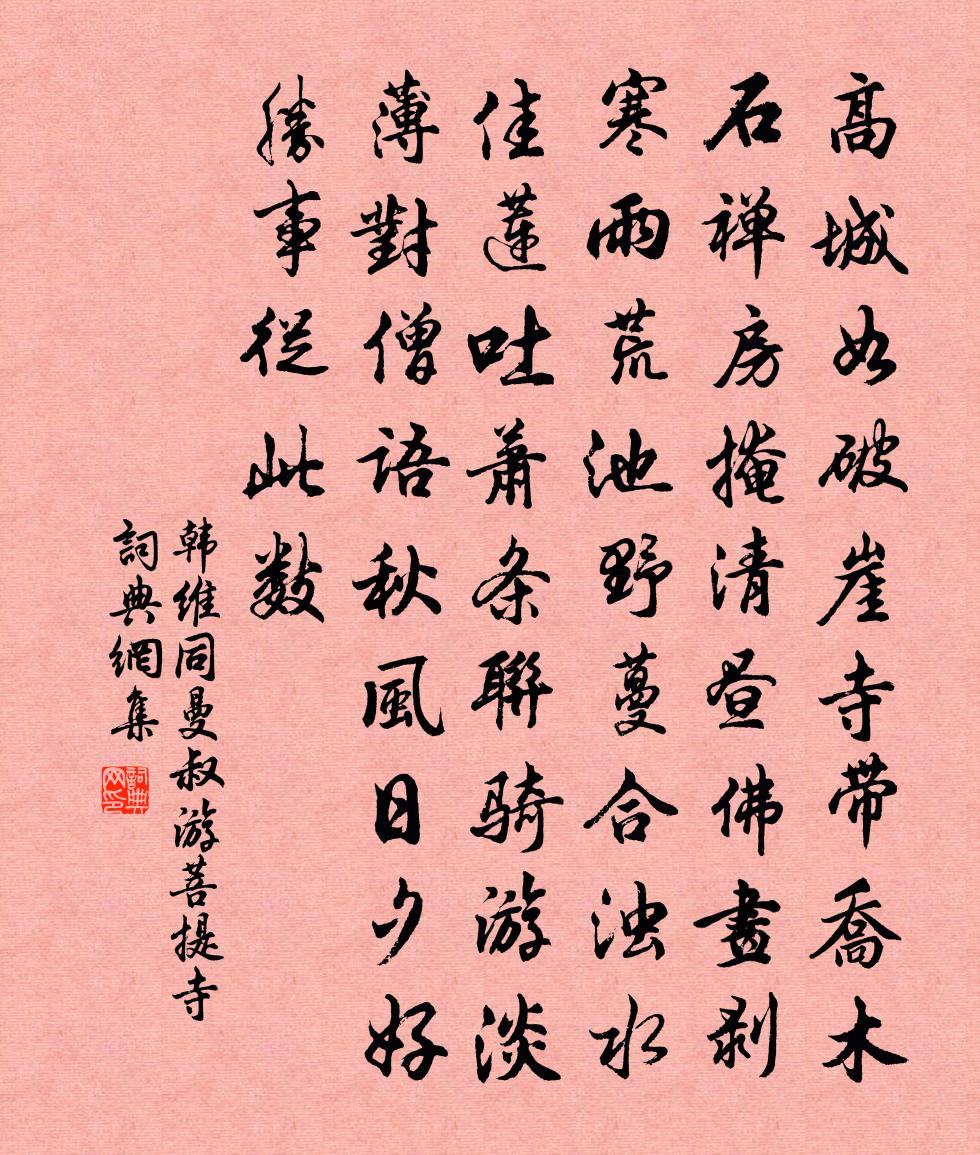 高城如破崖寺带喬木
石禅房掩清昼佛畫剥
寒雨荒池野蔓合浊水
佳莲吐萧条聯骑游淡
薄對僧語秋風日夕好
勝事從此数
韩维同曼叔游菩提寺
詞典網集
詞典网印